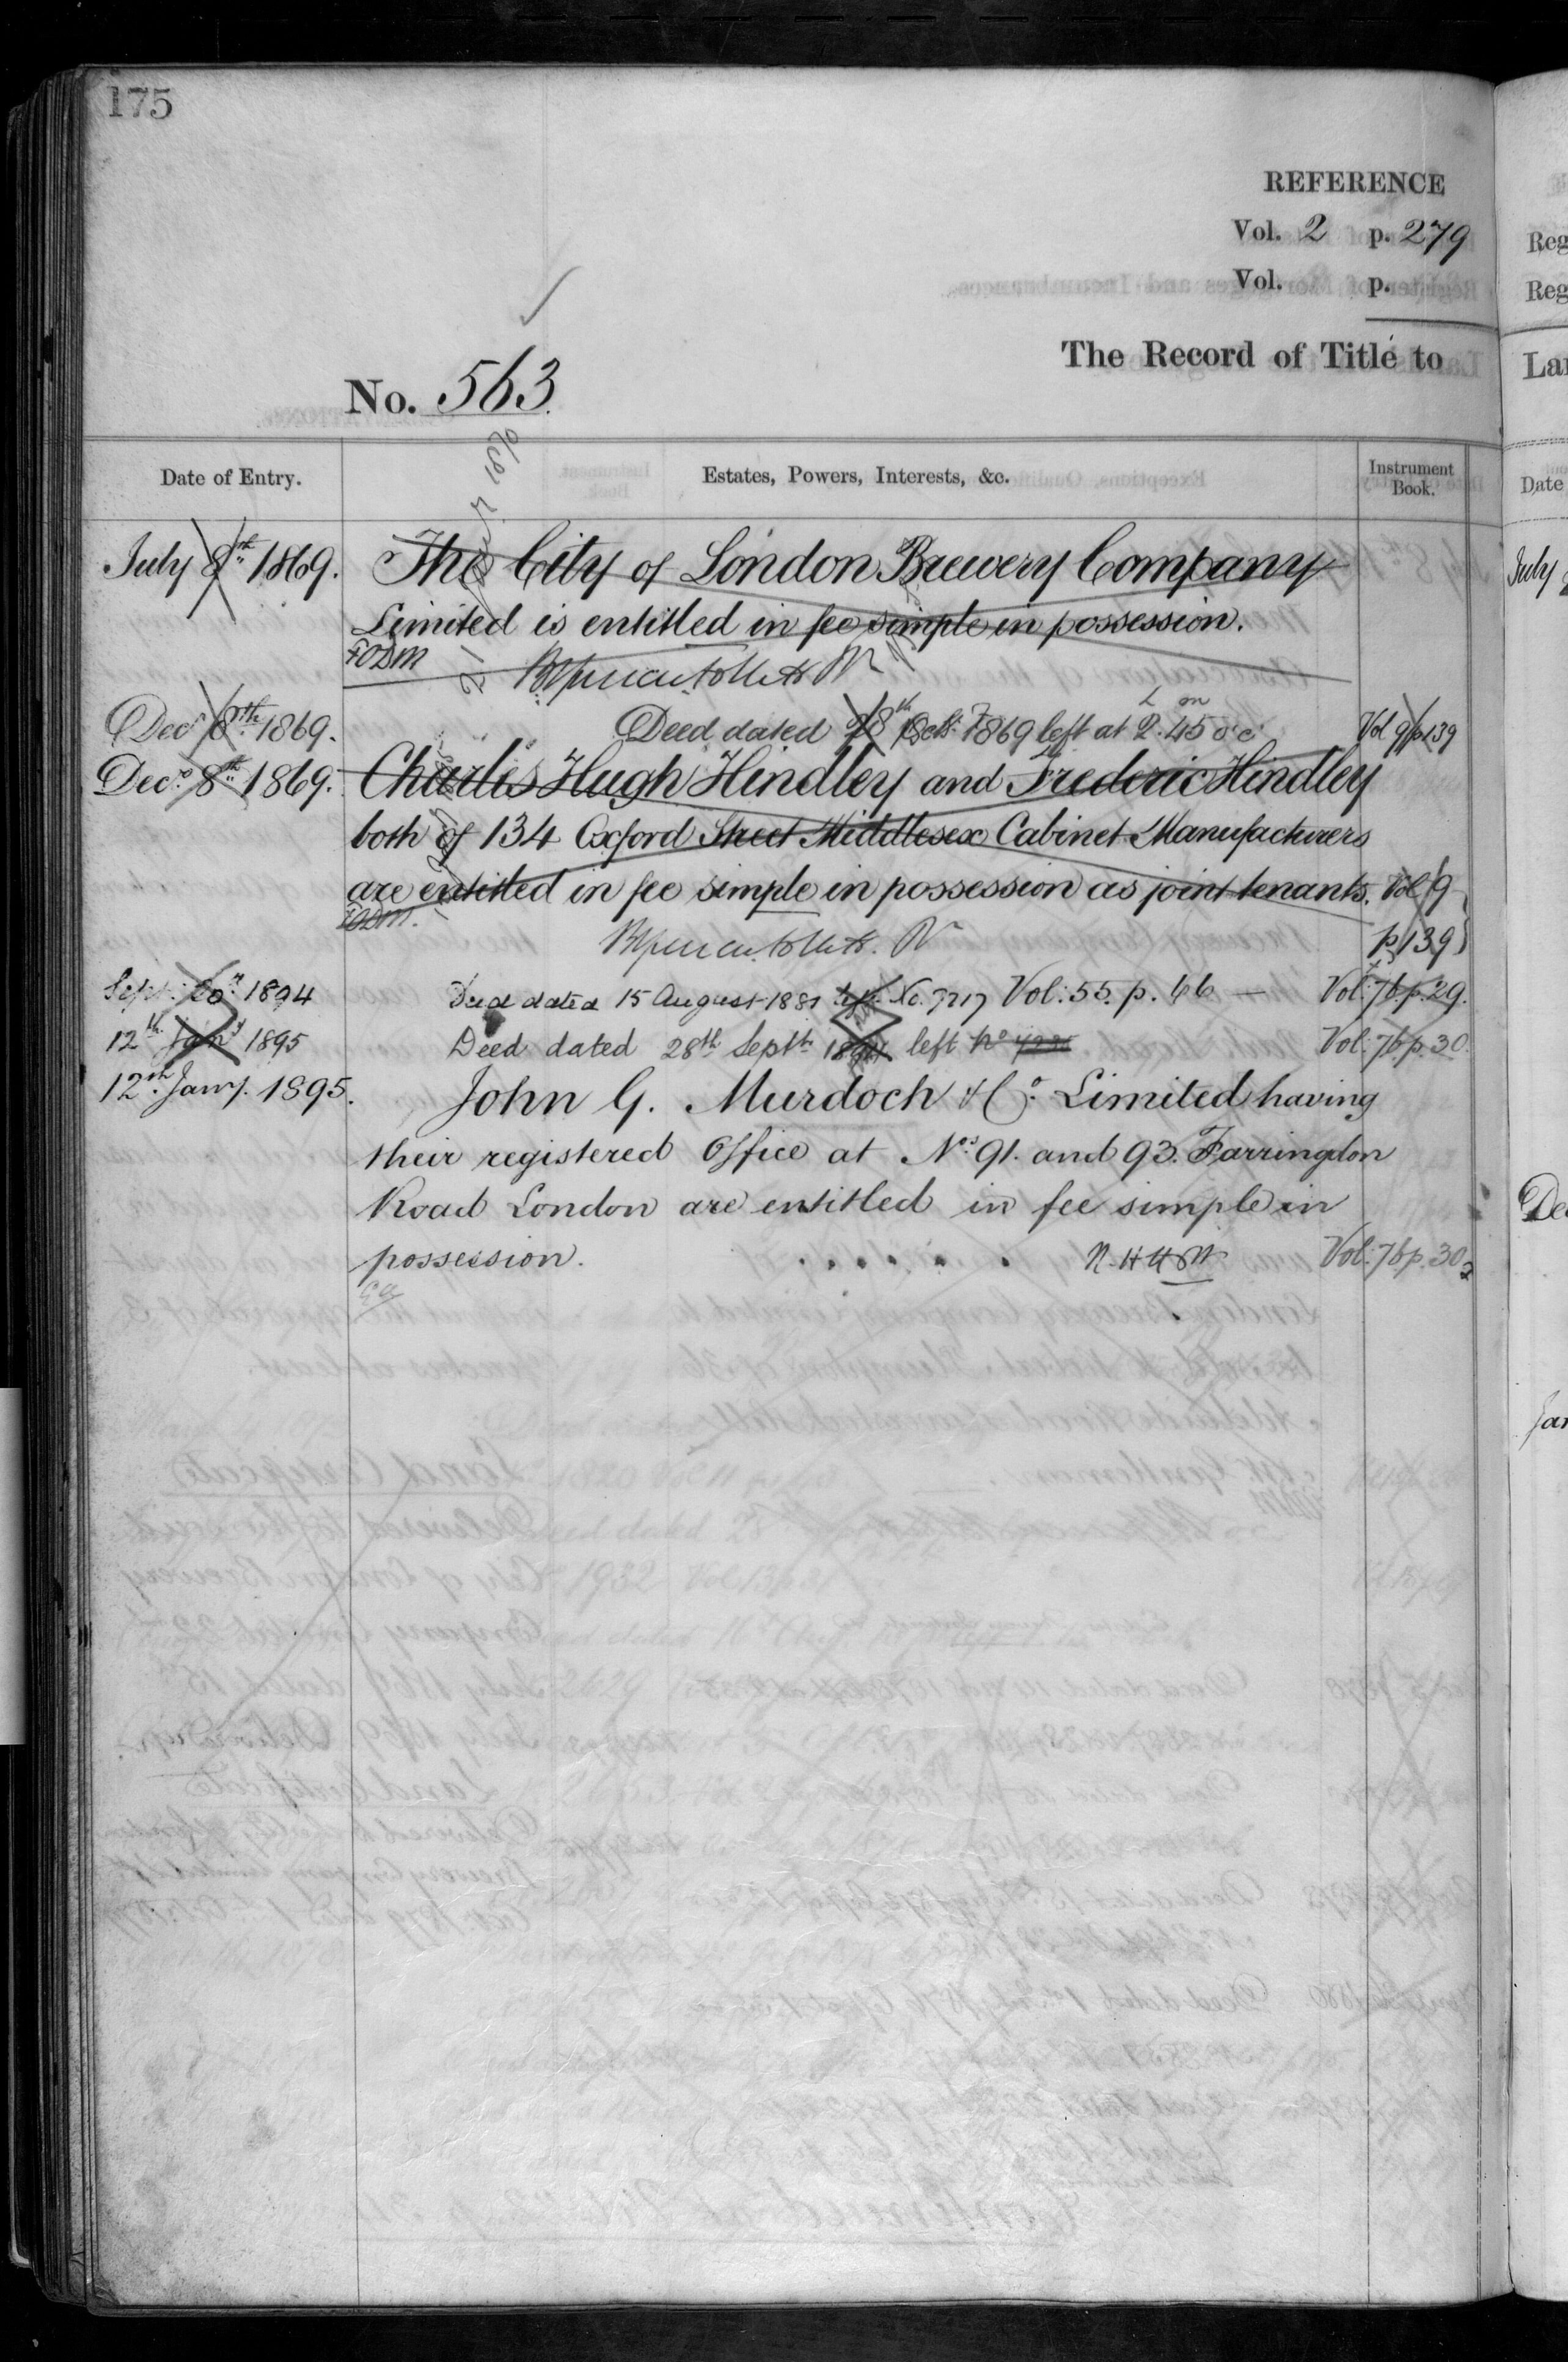 175
REFERENCE
Vol. 2 p. 279
Vol. p.
The Record of Title to
No. 563.
Date of Entry. Estates, Powers, Interests, &c. Instrument Book.
July 8th 1869. The City of London Brewery Company
Limited is entitled in fee simple in possession.
Decr 8th 1869. Deed dated 28th Octr. 1869 left at 2.45 Vol 9 p 139
Decr 8th 1869. Charles Hugh Hindley and Frederic Hindley
both of 134 Oxford Street Middlesex Cabinet Manufacturers
are entitled in fee simple in possession as joint tenants. Vol 9
p 139
Sept. 20th 1894 Deed dated 15 August 1881 left No. 7217 Vol: 55. p. 46 — Vol: 76 p. 29.
12th Jany 1895 Deed dated 28th Septr left No Vol: 76 p. 30.
12th Jany. 1895. John G. Murdoch & Co. Limited having
their registered Office at Nos 91. and 93. Farringdon
Road London are entitled in fee simple in
possession. Vol: 76 p. 30
Reg
Reg
Lan
Date
July
Dec
Jan